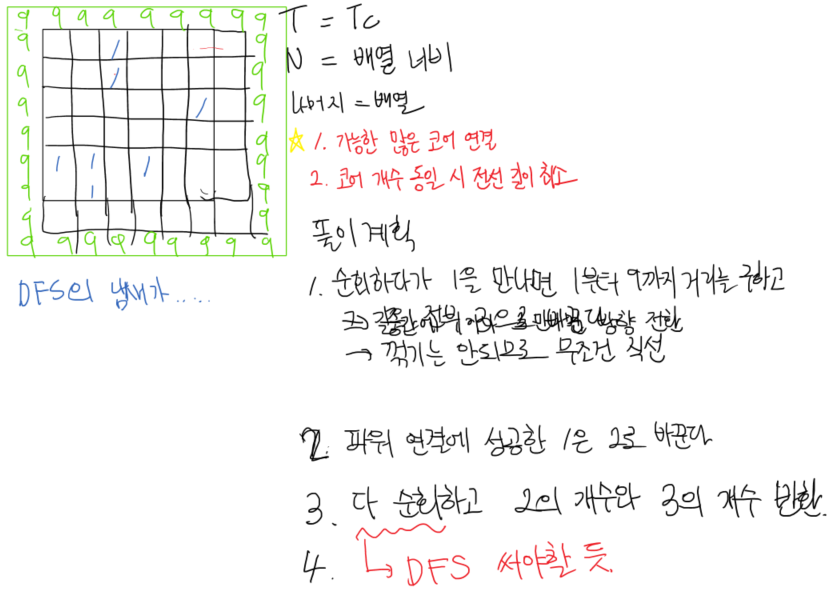 9 9 9 9 9 9 9 9 9
9 1 9
9 1 9
9 1 9
9 9
9 1 1 1 9
9 1 9
9 9
9 9 9 9 9 9 9 9 9
DFS의 냄새가.....
T = TC
N = 배열 너비
나머지 = 배열
☆ 1. 가능한 많은 코어 연결
2. 코어 개수 동일 시 전선 길이 최소
풀이 계획
1. 순회하다가 1을 만나면 1부터 9까지 거리를 구하고
방향 전환
→ 꺾기는 안되므로 무조건 직선
2. 파워 연결에 성공한 1은 2로 바꾼다
3. 다 순회하고 2의 개수와 3의 개수 반환.
4. DFS 써야할 듯.